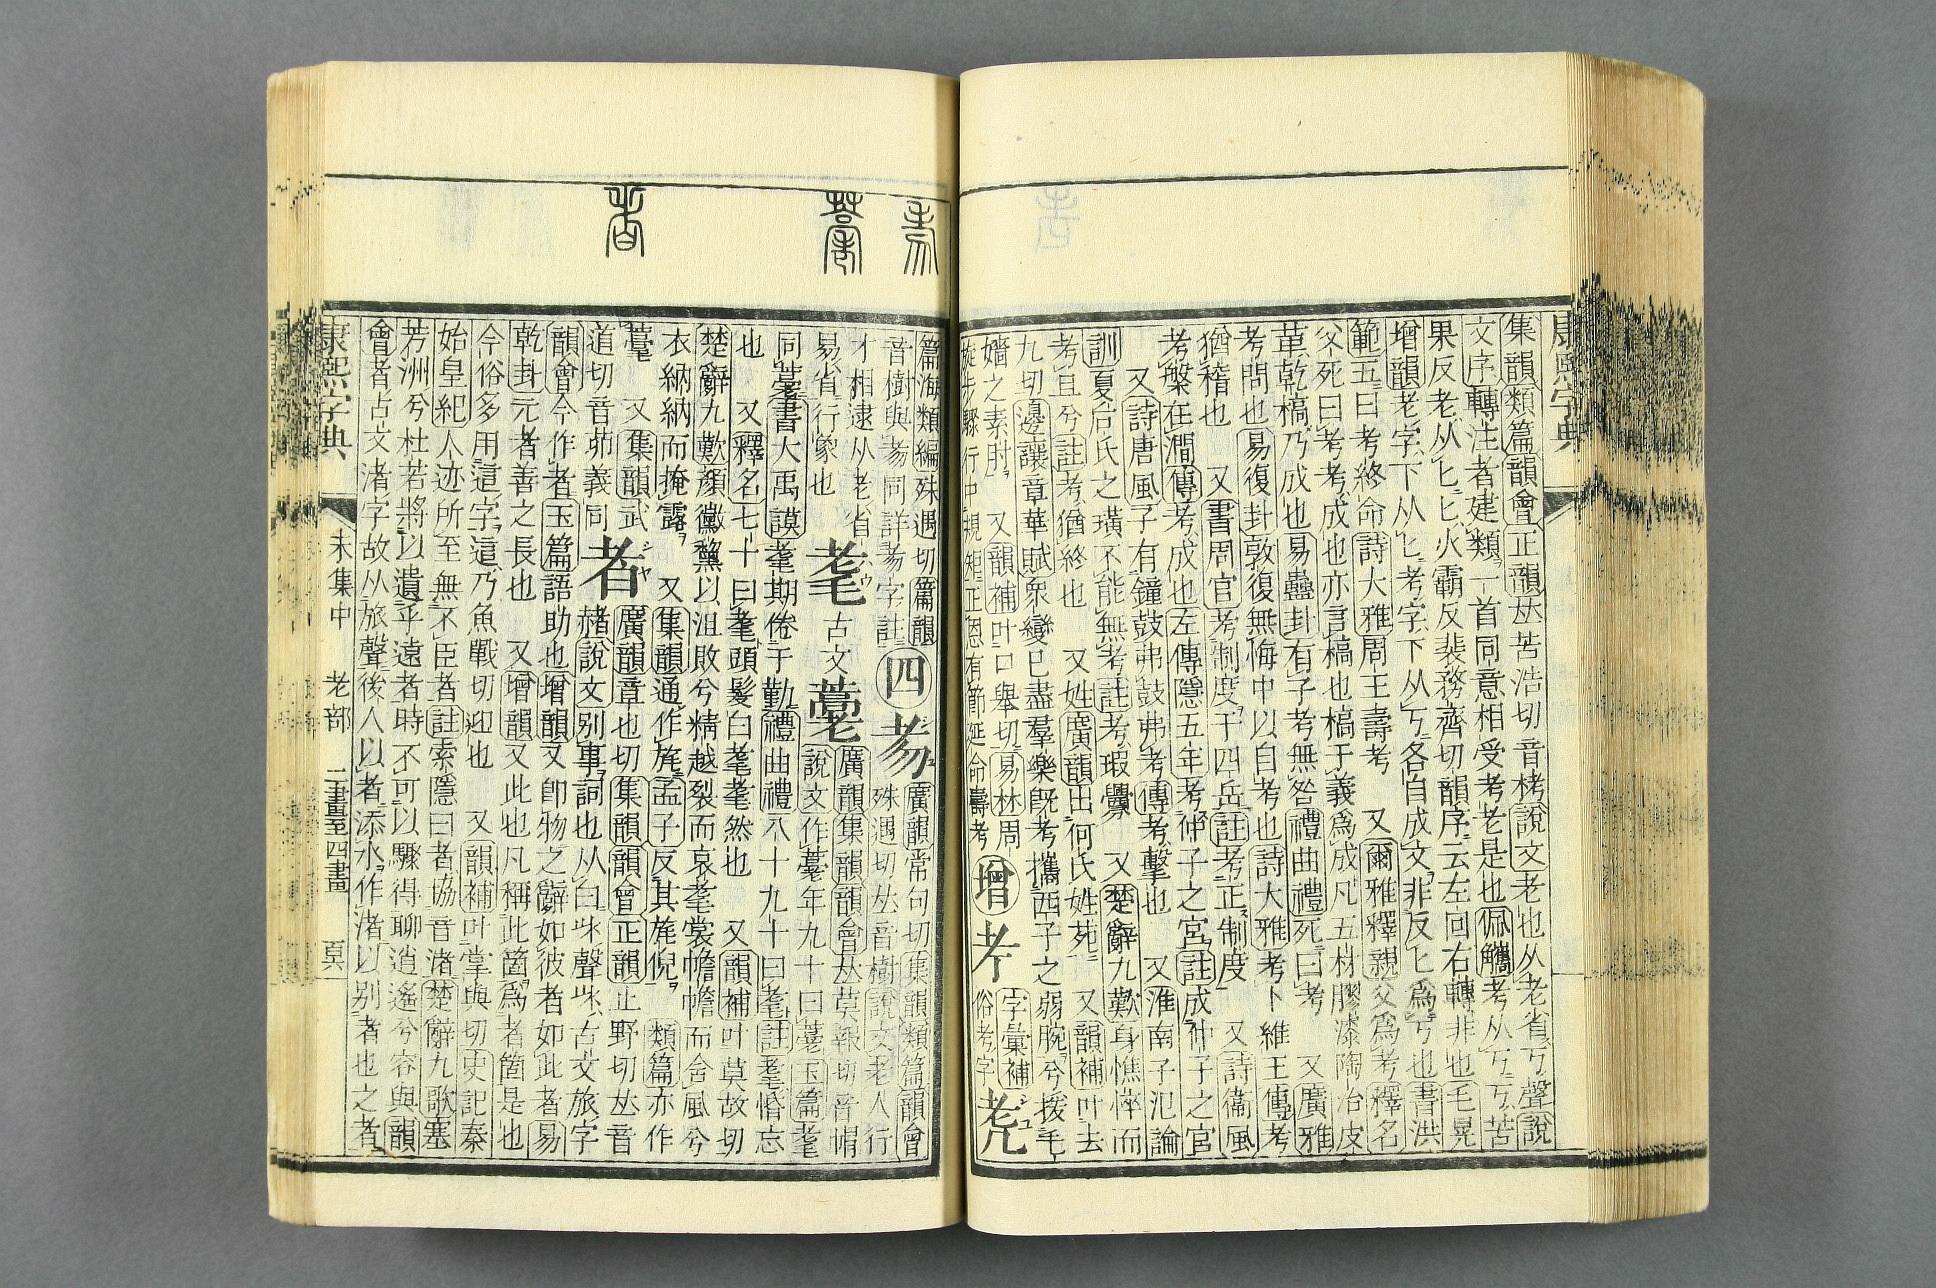 康熙字典
集韻類篇韻會正韻𠀤苦浩切音栲說文老也从老省丂聲說
文序轉注者建類一首同意相受考老是也佩觿考从丂丂苦
果反老从匕匕火霸反裴務齊切韻序云左回右轉非也毛晃
增韻老字下从匕考字下从丂各自成文非反匕爲丂也書洪
範五曰考終命詩大雅周王壽考 又爾雅釋親父爲考釋名
父死曰考考成也亦言槁也槁于義爲成凡五材膠漆陶冶皮
革乾槁乃成也易蠱卦有子考無咎禮曲禮死曰考 又廣雅
考問也易復卦敦復無悔中以自考也詩大雅考卜維王傳考
猶稽也 又書周官考制度于四岳註考正制度 又詩衞風
考槃在澗傳考成也左傳隱五年考仲子之宮註成仲子之宮
又詩唐風子有鐘鼓弗鼓弗考傳考擊也 又淮南子氾論
訓夏后氏之璜不能無考註考瑕釁 又楚辭九歎身憔悴而
考旦兮註考猶終也 又姓廣韻出何氏姓苑 又韻補叶去
九切邊讓章華賦衆變已盡羣樂旣考攜西子之弱腕兮援毛
嬙之素肘 又韻補叶口舉切易林周
旋步驟行中規矩正恩有節延命壽考
增 考 字彙補
俗考字
篇海類編殊遇切篇韻
音樹與𦒻同詳𦒻字註
四 𦒻 廣韻常句切集韻類篇韻會
殊遇切𠀤音樹說文老人行
才相逮从老省
易省行象也
耄 古文 廣韻集韻韻會𠀤莫報切音帽
說文作𦒷年九十曰𦒷玉篇耄
同𦒷書大禹謨耄期倦于勤禮曲禮八十九十曰耄註耄惛忘
也 又釋名七十曰耄頭髮白耄耄然也 又韻補叶莫故切
楚辭九歎顏黴黧以沮敗兮精越裂而哀耄裳襜襜而含風兮
衣納納而掩露 又集韻通作旄孟子反其旄倪 類篇亦作
𦒷 又集韻武道切音茆義同
者 廣韻章也切集韻韻會正韻止野切𠀤音
赭說文別事詞也从白𣥐聲𣥐古文旅字
韻會今作者玉篇語助也增韻又卽物之辭如彼者如此者易
乾卦元者善之長也 又增韻又此也凡稱此箇爲者箇是也
今俗多用這字這乃魚戰切迎也 又韻補叶掌與切史記秦
始皇紀人迹所至無不臣者註索隱曰者協音渚楚辭九歌搴
芳洲兮杜若將以遺乎遠者時不可以驟得聊逍遙兮容與韻
會者古文渚字故从旅聲後人以者添水作渚以别者也之者
康熙字典 未集中 老部 二畫至四畫